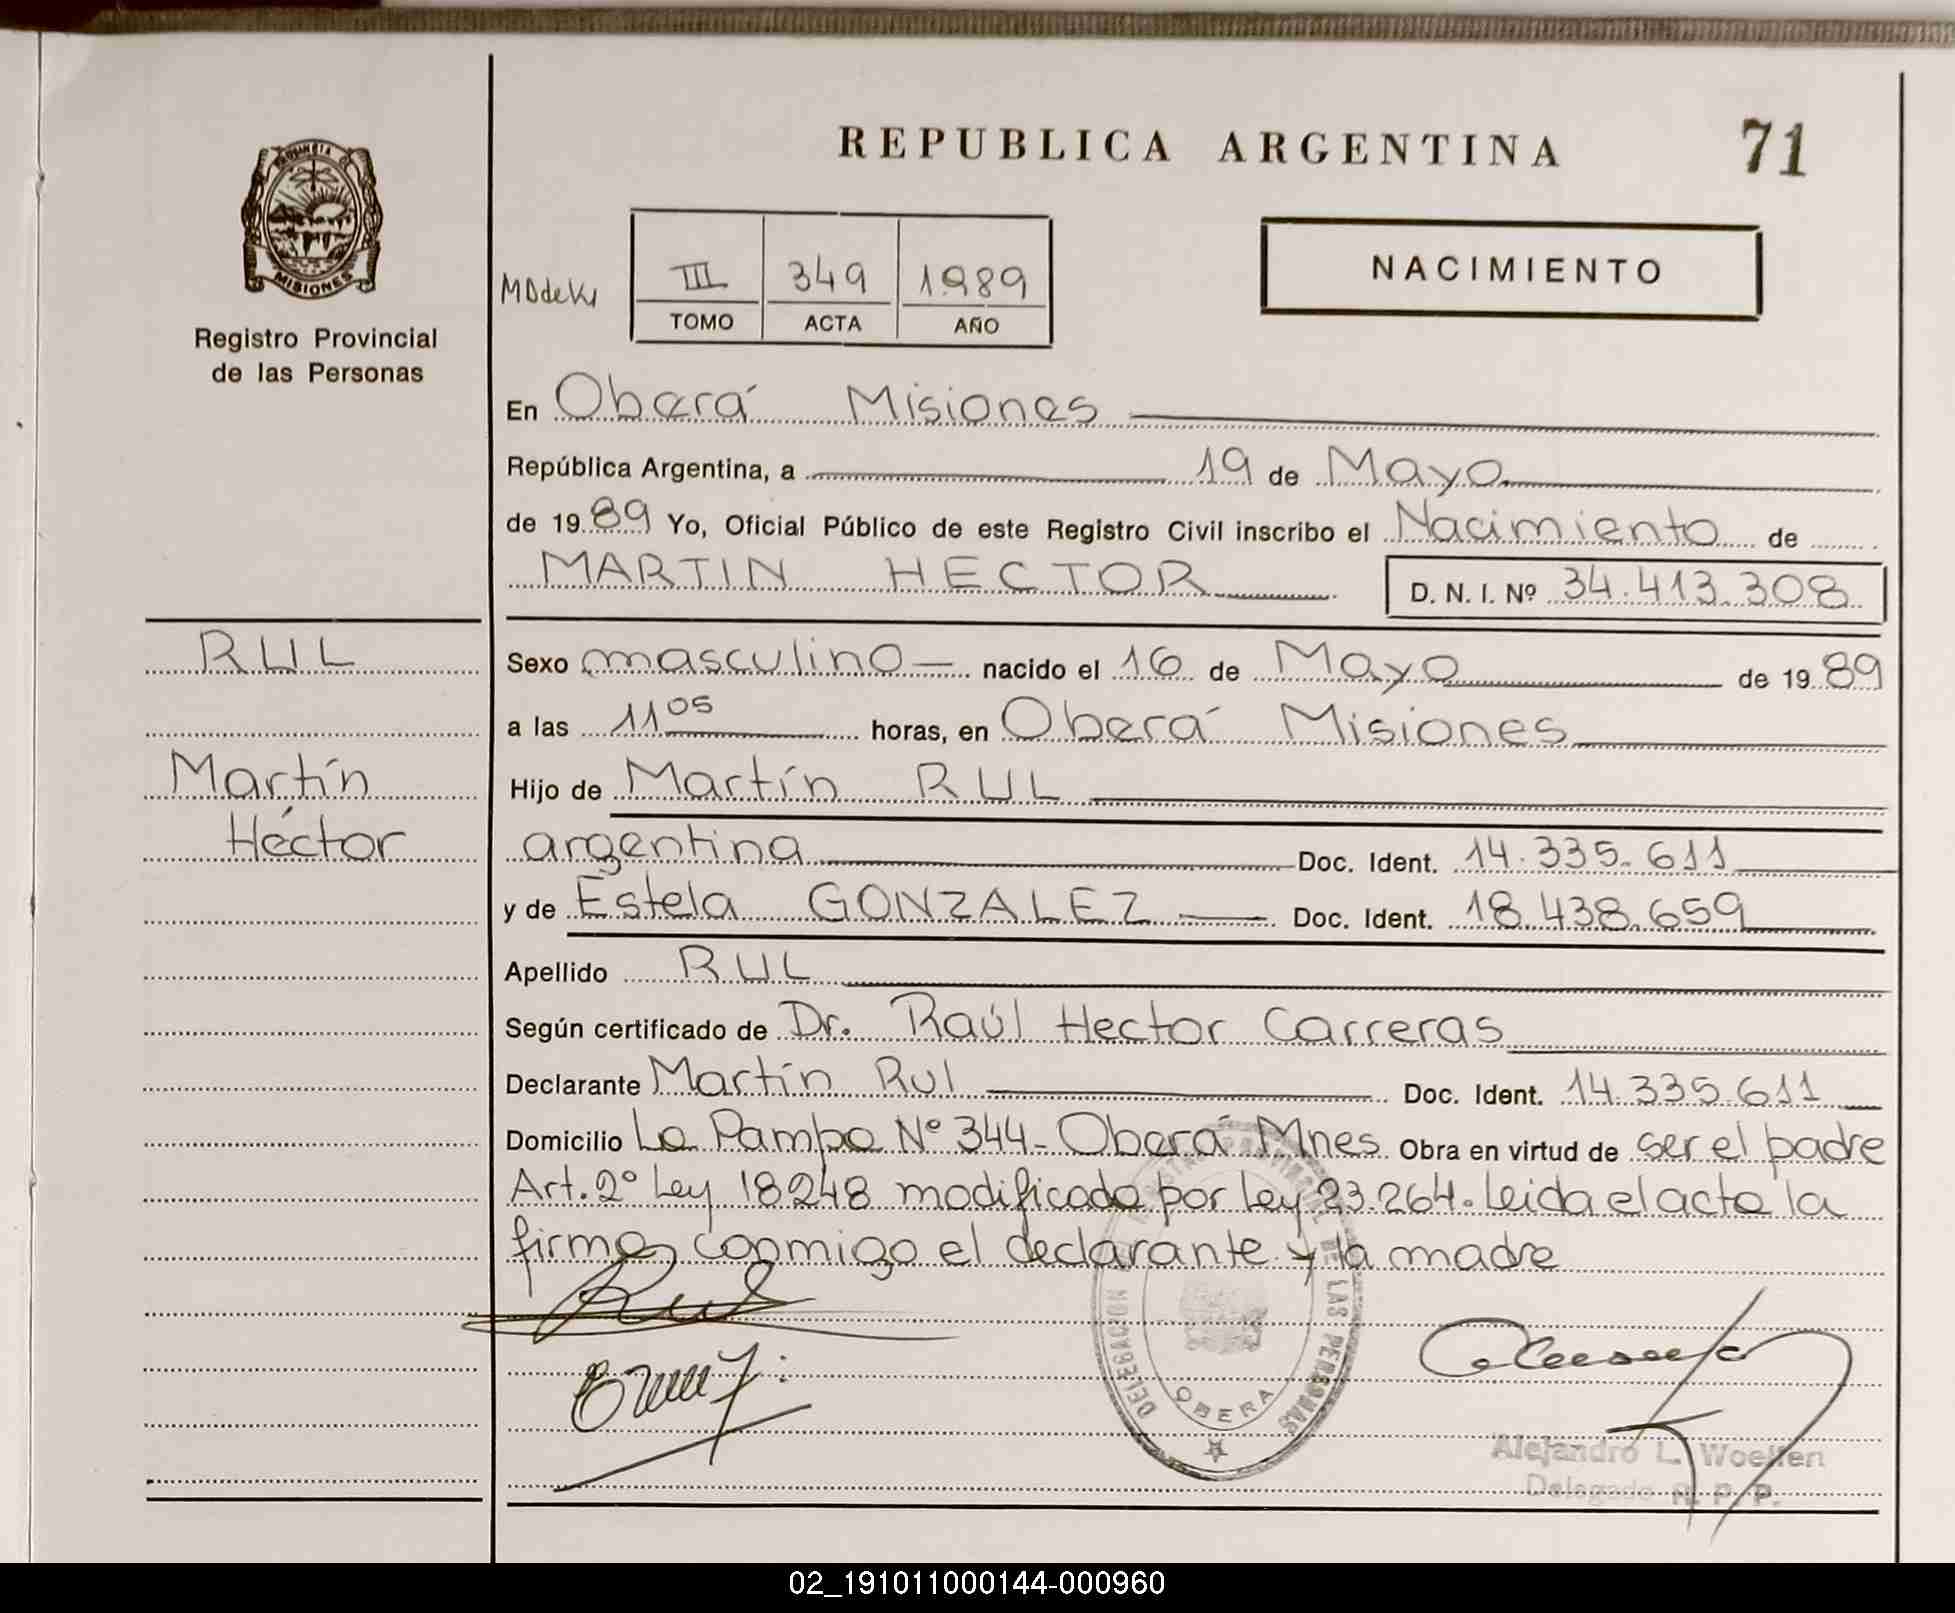 REPUBLICA ARGENTINA
71
PROVINCIA DE
MISIONES
Registro Provincial
de las Personas
III
349
1989
TOMO
ACTA
AÑO
NACIMIENTO
En Oberá Misiones
República Argentina, a 19 de Mayo
de 1989 Yo, Oficial Público de este Registro Civil inscribo el Nacimiento de
MARTIN HECTOR
D. N. I. Nº 34.413.308
RUL
Sexo masculino — nacido el 16 de Mayo de 1989
a las 11 05 horas, en Oberá Misiones
Martín
Hijo de Martín RUL
Héctor
argentina Doc. Ident. 14.335.611
y de Estela GONZALEZ Doc. Ident. 18.438.659
Apellido RUL
Según certificado de Dr. Raúl Hector Carreras
Declarante Martín Rul Doc. Ident. 14.335.611
Domicilio La Pampa Nº 344- Oberá Mnes Obra en virtud de ser el padre
Art. 2º Ley 18248 modificada por Ley 23.264. Leida el acta la
firma conmigo el declarante y la madre
Rul
DELEGACION DEL REGISTRO PROVINCIAL DE LAS PERSONAS
OBERA
Alejandro L.
Delegado R. P. P.
02_191011000144-000960